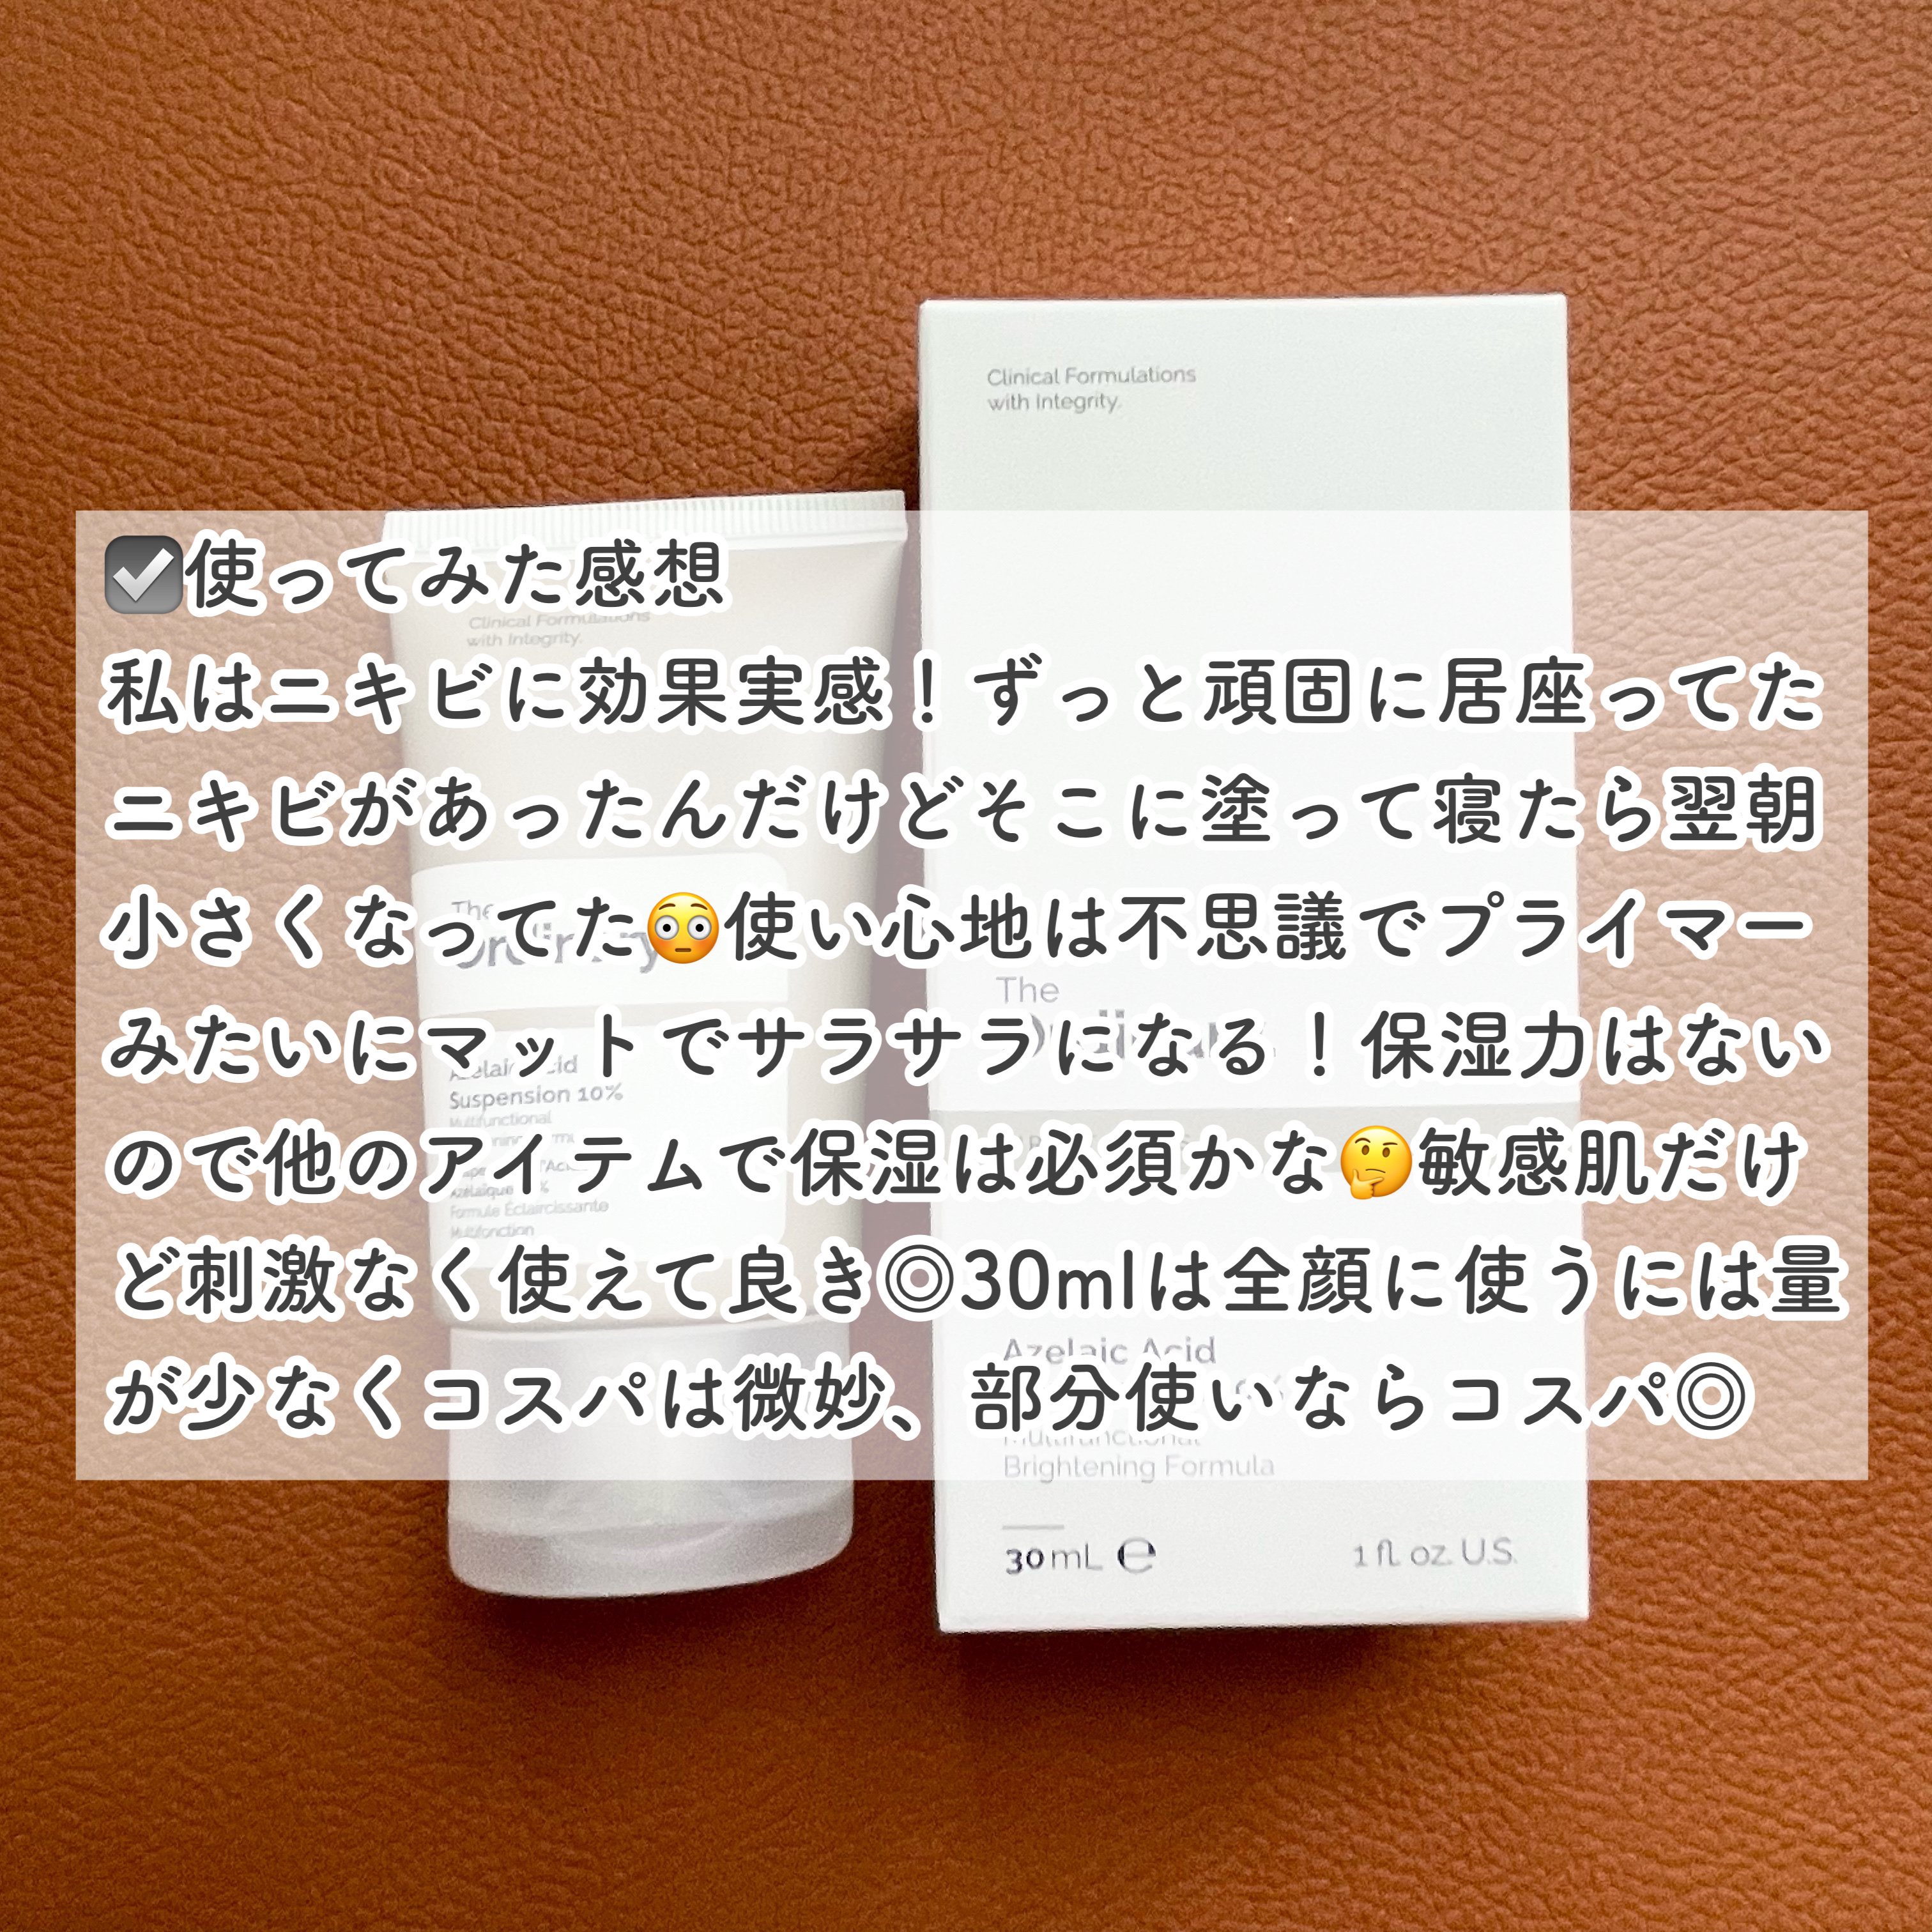 Clinical Formulations
with Integrity.
☑使ってみた感想
私はニキビに効果実感！ずっと頑固に居座ってた
ニキビがあったんだけどそこに塗って寝たら翌朝
小さくなってた😳使い心地は不思議でプライマー
みたいにマットでサラサラになる！保湿力はない
ので他のアイテムで保湿は必須かな🤔敏感肌だけ
ど刺激なく使えて良き◎30mlは全顔に使うには量
が少なくコスパは微妙、部分使いならコスパ◎
Clinical Formulations
with Integrity.
The
Ordinary
Suspension 10%
Multifunctional
Formule Éclaircissante
Multifonction
The
Azelaic Acid
Multifunctional
Brightening Formula
30 mL ℮
1 fl. oz. U.S.